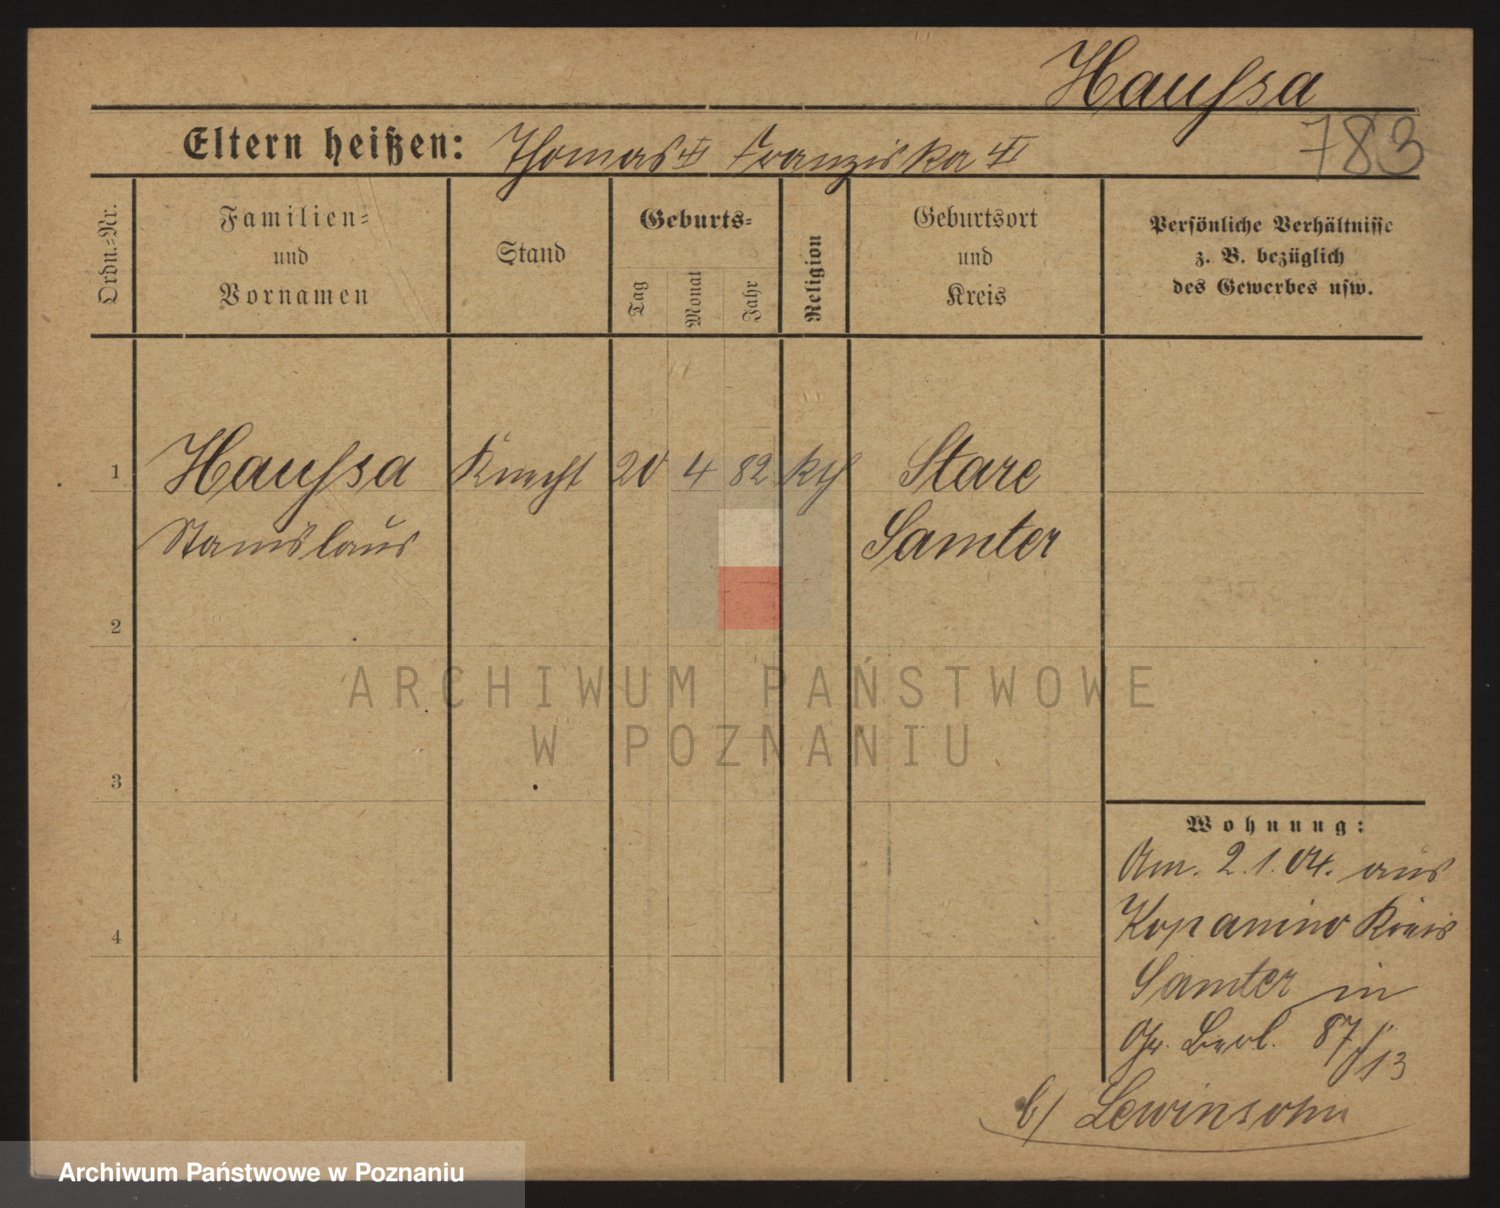 Haußsa
783
Eltern heißen: Thomas Franziska
Ordn.=Nr.
Familien=
und
Vornamen
Stand
Geburts=
Tag
Monat
Jahr
Religion
Geburtsort
und
Kreis
Persönliche Verhältnisse
z. B. bezüglich
des Gewerbes usw.
1 Haußsa Knecht 20 4 82 kth Stare
Stanislaus Samter
2
ARCHIWUM PAŃSTWOWE
W POZNANIU
3
Wohnung:
Am. 2.1.04. aus
Kopanino Kreis
4
Samter in
Gr. Berl. 87/13
b/ Lewinsohn
Archiwum Państwowe w Poznaniu